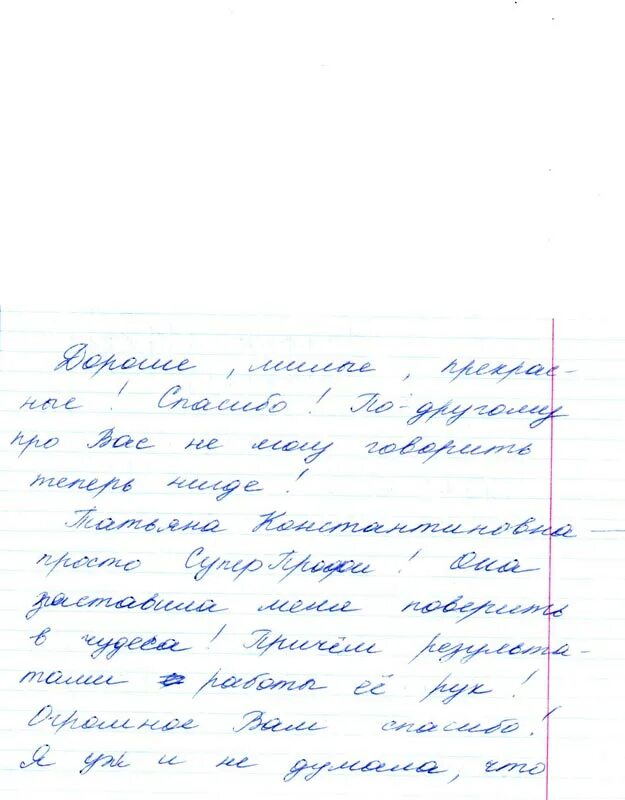 Дорогие, милые, прекрас-
ные! Спасибо! По-другому
про Вас не могу говорить
теперь нигде!
Татьяна Константиновна —
просто СуперПрофи! Она
заставила меня поверить
в чудеса! Причём результа-
тами работы её рук!
Огромное Вам спасибо!
Я уж и не думала, что